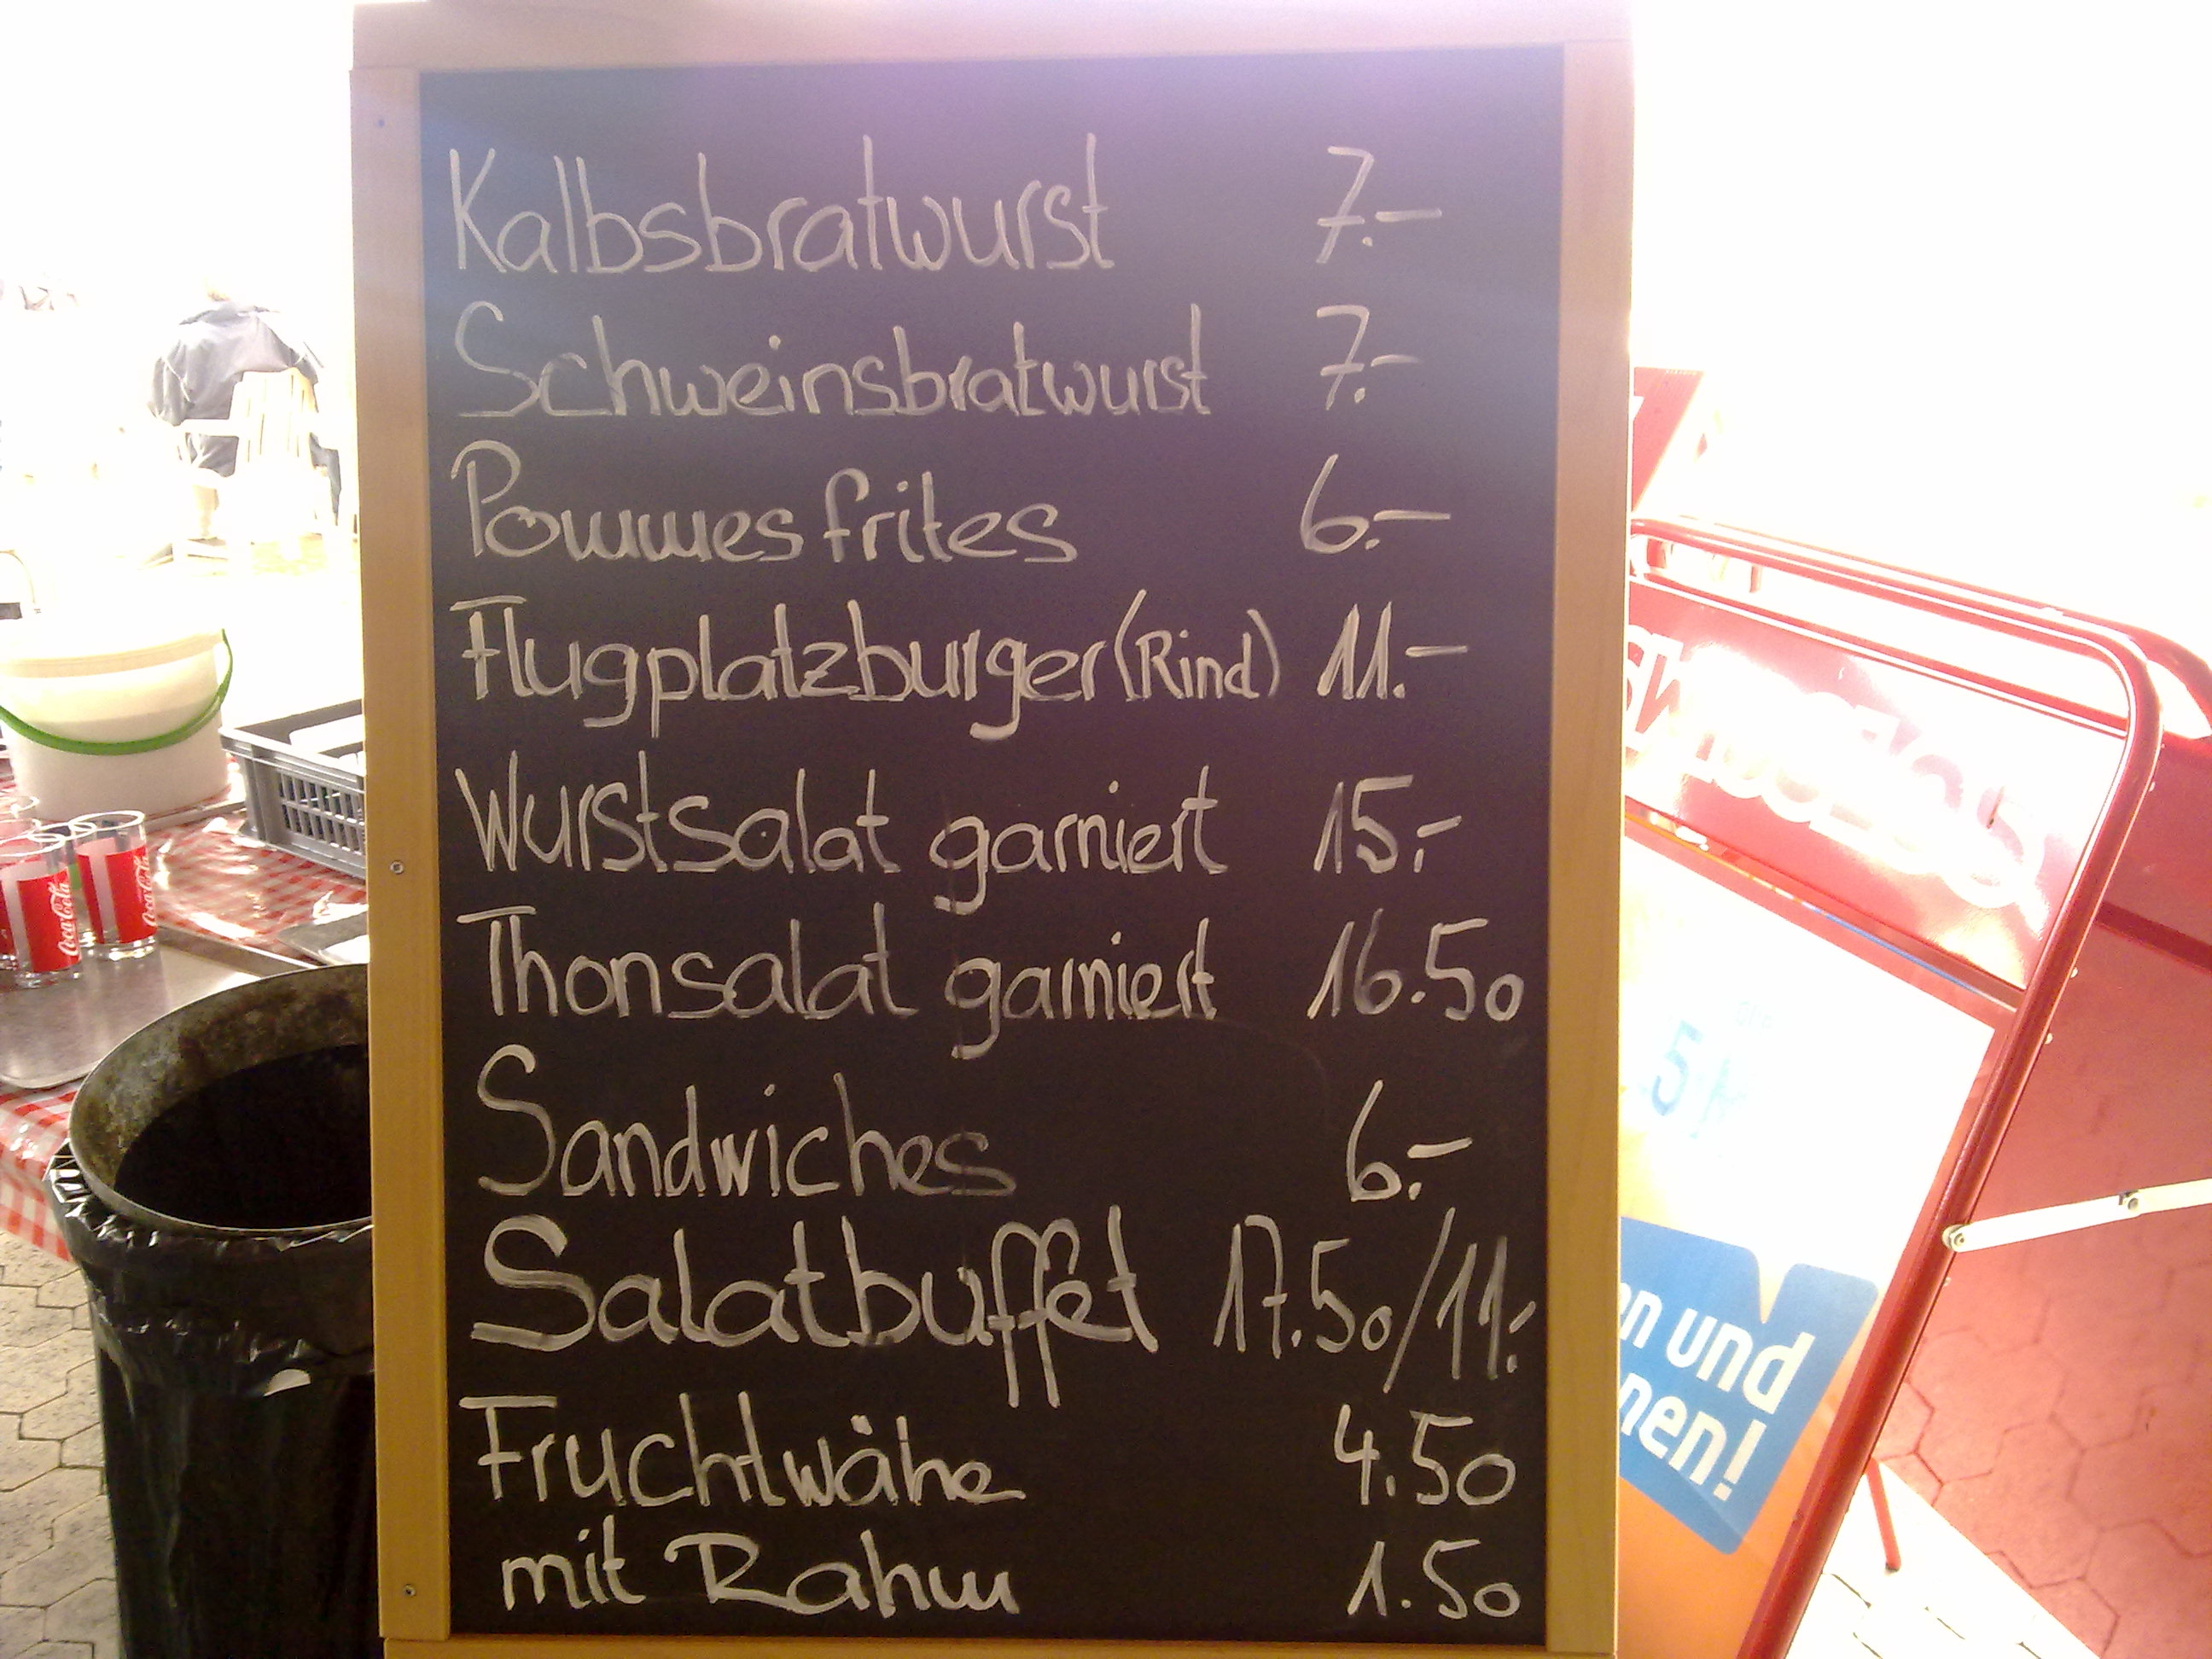 Kalbsbratwurst 7.-
Schweinsbratwurst 7.-
Pommes frites 6.-
Flugplatzburger (Rind) 11.-
Wurstsalat garniert 15.-
Thonsalat garniert 16.50
Sandwiches 6.-
Salatbuffet 17.50/11.-
Fruchtwähe 4.50
mit Rahm 1.50
Coca-Cola
Coca-Cola
und